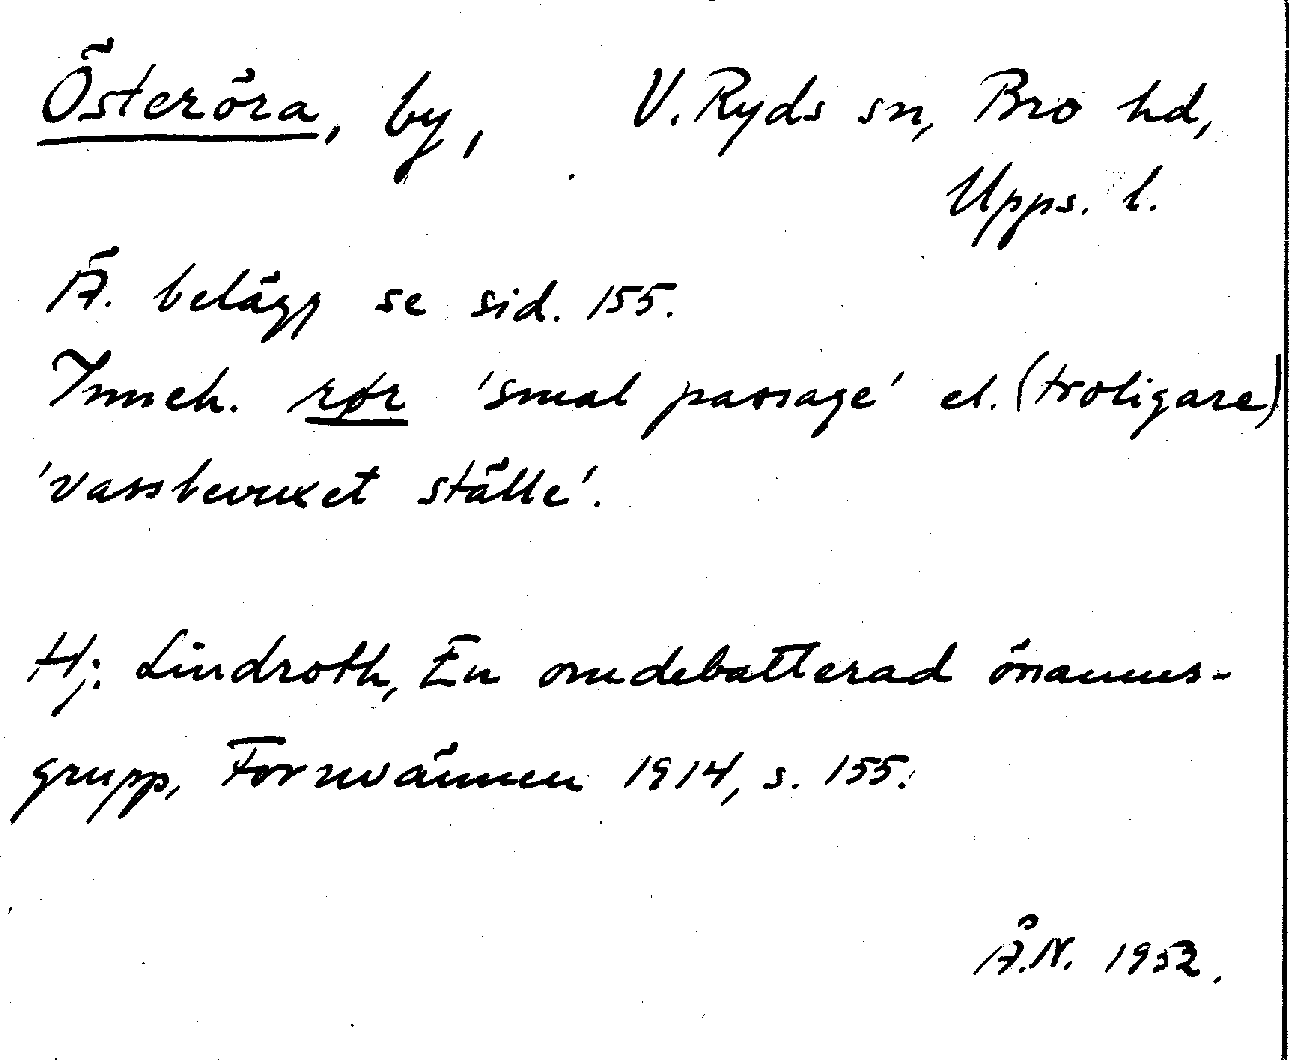 Österöra, by, V. Ryds sn, Bro hd,
Upps. l.
Ä. belägg se sid. 155.
Inneh. rør 'smal passage' el. (troligare)
'vassbevuxet ställe'.
Hj. Lindroth, En omdebatterad önamns-
grupp, Fornvännen 1914, s. 155.
Å.N. 1952.